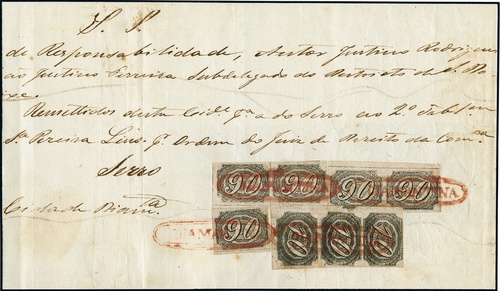 S. P.
de Responsabilidade, Autor Justino Rodrigues
ao Justino Ferreira Subdelegado do Districto de S. 
Remettidos desta Cid.e p.a do Serro ao 2º Tab.am
Pereira Lins. P. Ordem do Juiz de Direito da Com.ca
Serro
Cidade Diam.ta
90 90 90 90
90 90 90 90
DIAMANTINA